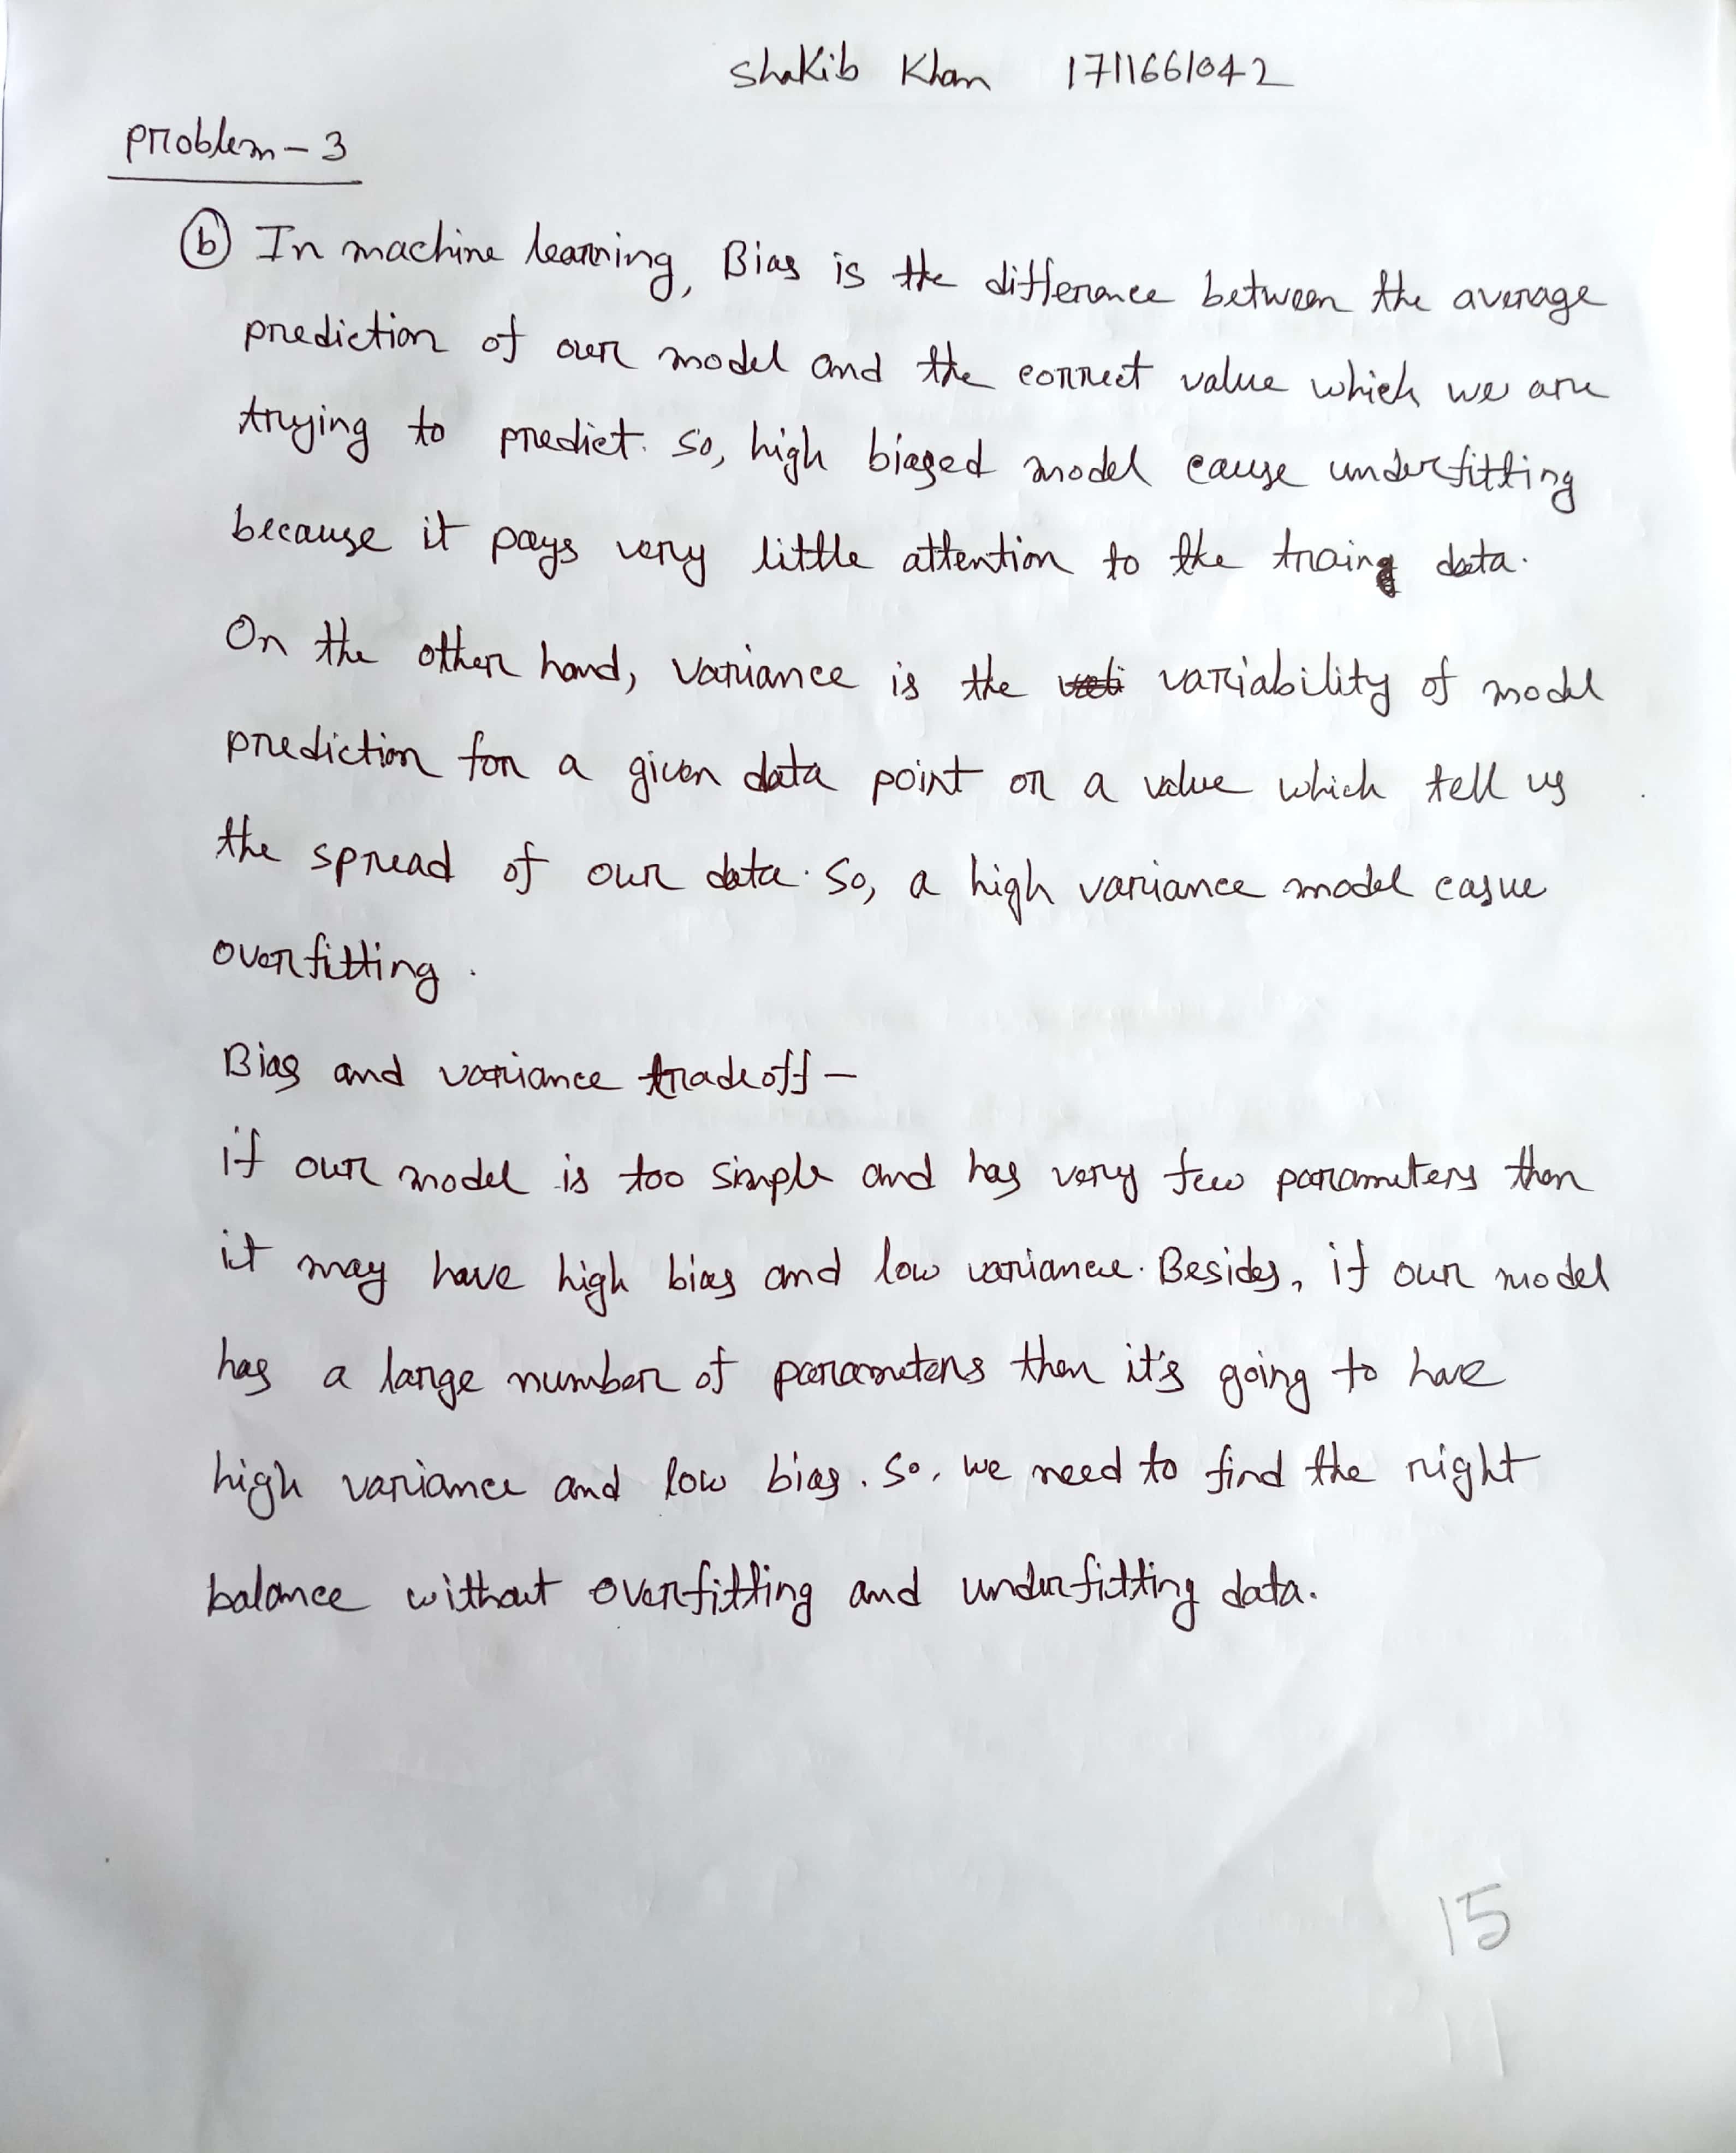 Shakib Khan 1711661042
Problem-3
(b) In machine learning, Bias is the difference between the average
prediction of our model and the correct value which we are
trying to predict. So, high biased model cause underfitting
because it pays very little attention to the traing data.
On the other hand, variance is the variability of model
prediction for a given data point or a value which tell us
the spread of our data. So, a high variance model casue
overfitting.
Bias and variance tradeoff -
if our model is too simple and has very few parameters then
it may have high bias and low variance. Besides, if our model
has a large number of parameters then it's going to have
high variance and low bias. So, we need to find the right
balance without overfitting and underfitting data.
15